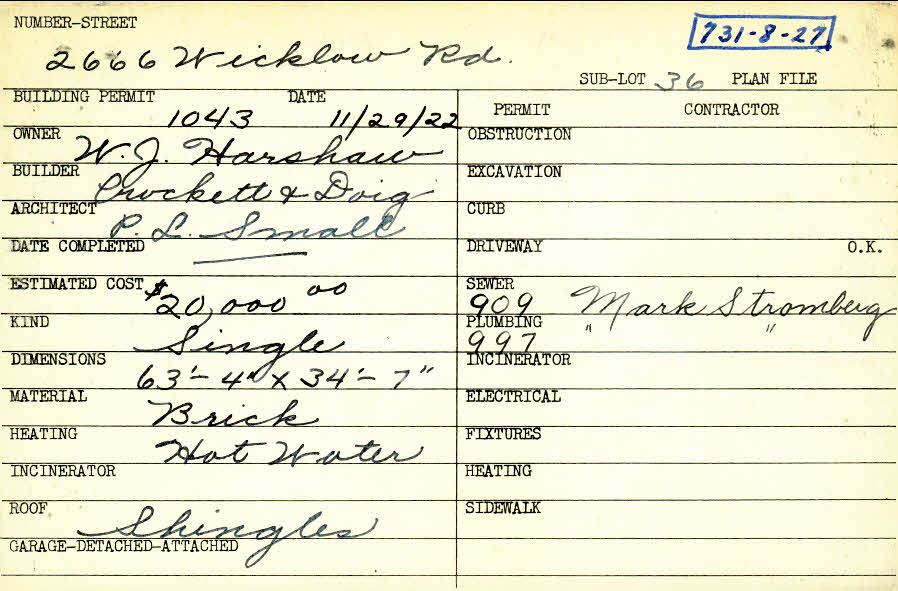 NUMBER-STREET
731-8-27
2666 Wicklow Rd.
SUB-LOT 36 PLAN FILE
BUILDING PERMIT 1043 DATE 11/29/22
PERMIT CONTRACTOR
OWNER W. J. Harshaw
OBSTRUCTION
BUILDER Crockett & Doig
EXCAVATION
ARCHITECT P. L. Small
CURB
DATE COMPLETED
DRIVEWAY O.K.
ESTIMATED COST $20,000 00
SEWER 909 Mark Stromberg
KIND Single
PLUMBING 997 " "
DIMENSIONS 63'-4" x 34'-7"
INCINERATOR
MATERIAL Brick
ELECTRICAL
HEATING Hot Water
FIXTURES
INCINERATOR
HEATING
ROOF Shingles
SIDEWALK
GARAGE-DETACHED-ATTACHED